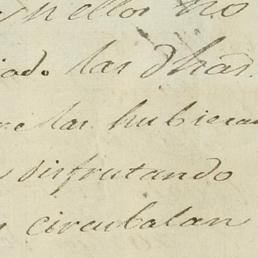 en ellos no
ado. las dhas.
las hubieran
disfrutando
circubalan